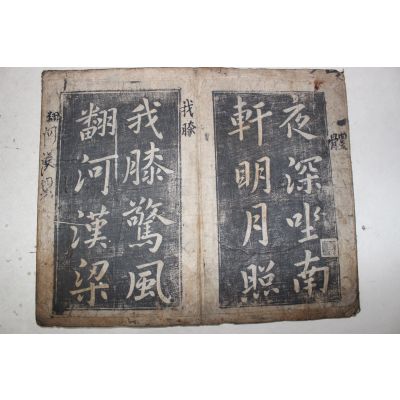 體
夜深坐南
軒明月照
我膝
我膝驚風
翻河漢梁
翻河漢梁